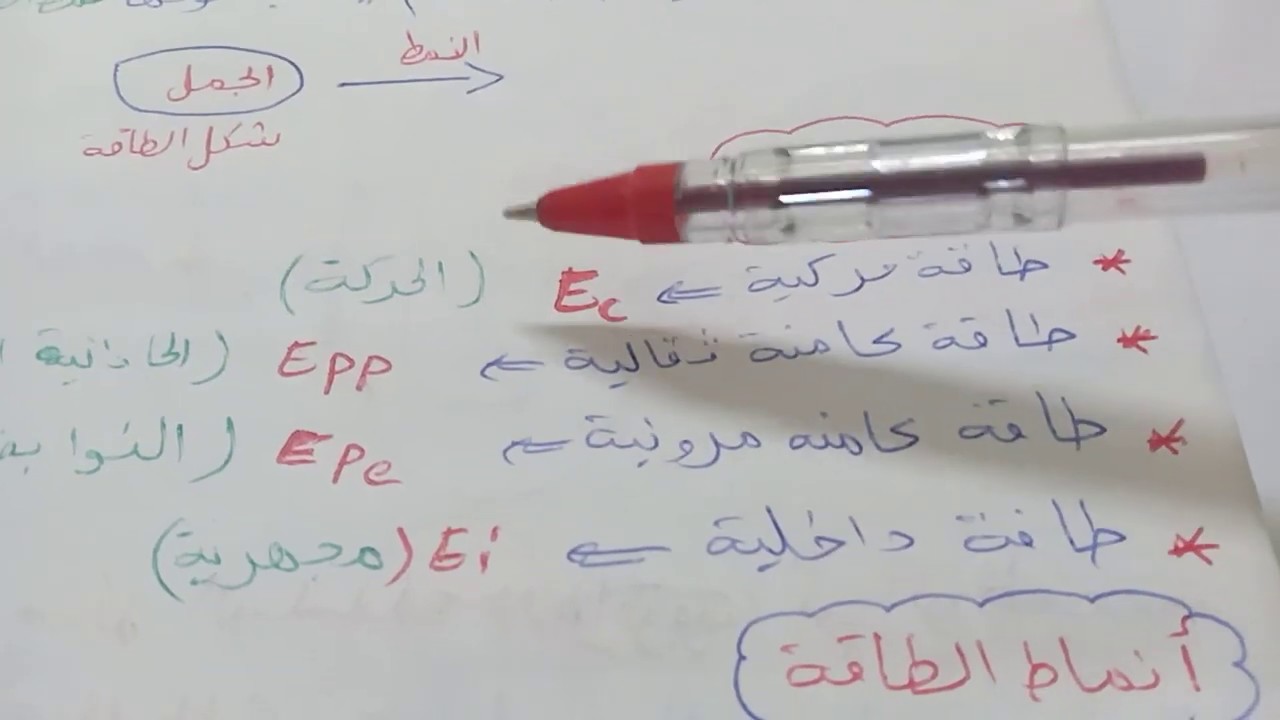 النمط
الجمل
شكل الطاقة
* طاقة حركية ⇐ Ec (الحركة)
* طاقة كامنة ثقالية ⇐ Epp (الجاذبية
* طاقة كامنه مرونية ⇐ Epe (النوابض
* طاقة داخلية ⇐ Ei (مجهرية)
أنماط الطاقة